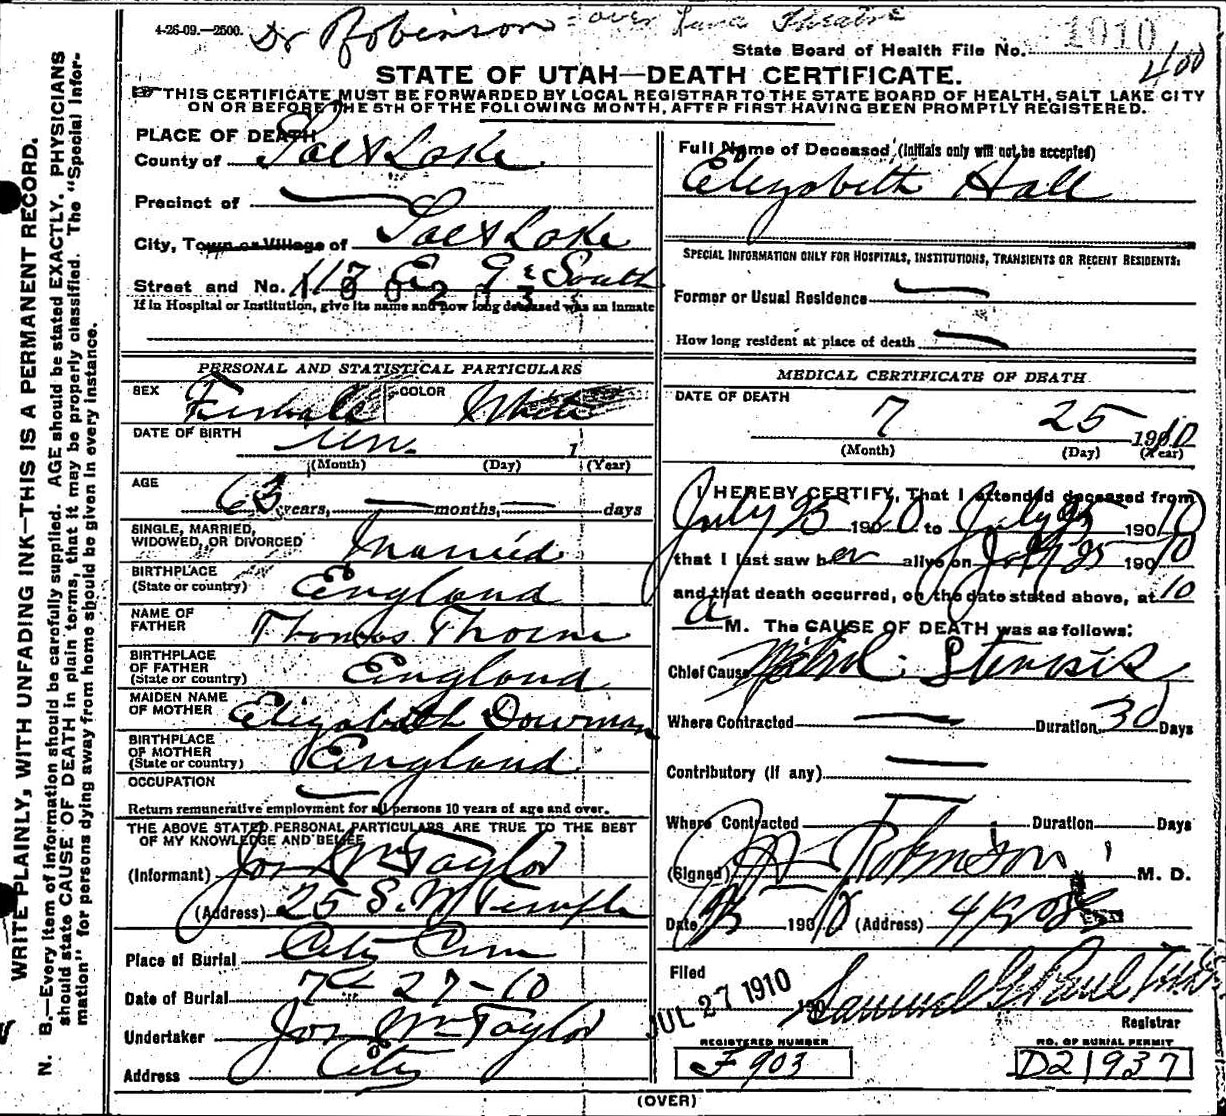 4-26-09.—2500. Dr Robinson = over Luna Theatre
State Board of Health File No. 1010
400
STATE OF UTAH—DEATH CERTIFICATE.
THIS CERTIFICATE MUST BE FORWARDED BY LOCAL REGISTRAR TO THE STATE BOARD OF HEALTH, SALT LAKE CITY
ON OR BEFORE THE 5TH OF THE FOLLOWING MONTH, AFTER FIRST HAVING BEEN PROMPTLY REGISTERED.
WRITE PLAINLY, WITH UNFADING INK—THIS IS A PERMANENT RECORD.
N. B.—Every item of information should be carefully supplied. AGE should be stated EXACTLY. PHYSICIANS
should state CAUSE OF DEATH in plain terms, that it may be properly classified. The "Special Infor-
mation" for persons dying away from home should be given in every instance.
PLACE OF DEATH
County of Salt Lake
Precinct of —
City, Town or Village of Salt Lake
Street and No. 117 E 9th South
If in Hospital or Institution, give its name and how long deceased was an inmate
PERSONAL AND STATISTICAL PARTICULARS
SEX Female COLOR White
DATE OF BIRTH 1
(Month) (Day) (Year)
AGE
63 years, — months, — days
SINGLE, MARRIED,
WIDOWED, OR DIVORCED Married
BIRTHPLACE
(State or country) England
NAME OF
FATHER Thomas Thorne
BIRTHPLACE
OF FATHER
(State or country) England
MAIDEN NAME
OF MOTHER Elizabeth Dowman
BIRTHPLACE
OF MOTHER
(State or country) England
OCCUPATION —
Return remunerative employment for all persons 10 years of age and over.
THE ABOVE STATED PERSONAL PARTICULARS ARE TRUE TO THE BEST
OF MY KNOWLEDGE AND BELIEF
(Informant) Jos Wm Taylor
(Address) 25 S. W Temple
Place of Burial City Cem
Date of Burial 7 27-10
Undertaker Jos Wm Taylor
Address City
Full Name of Deceased (Initials only will not be accepted)
Elizabeth Hall
SPECIAL INFORMATION ONLY FOR HOSPITALS, INSTITUTIONS, TRANSIENTS OR RECENT RESIDENTS:
Former or Usual Residence —
How long resident at place of death —
MEDICAL CERTIFICATE OF DEATH
DATE OF DEATH
7 25 1910
(Month) (Day) (Year)
I HEREBY CERTIFY, That I attended deceased from
July 25 1910 to July 25 190 10
that I last saw her alive on July 25 190 10
and that death occurred, on the date stated above, at 10
a M. The CAUSE OF DEATH was as follows:
Chief Cause Mitral Stenosis
Where Contracted — Duration 30 Days
Contributory (if any) —
Where Contracted — Duration Days
(Signed) Robinson M. D.
Date 190 10 (Address)
Filed JUL 27 1910 190
Samuel G. Paul
Registrar
REGISTERED NUMBER NO. OF BURIAL PERMIT
F 903 D21937
(OVER)